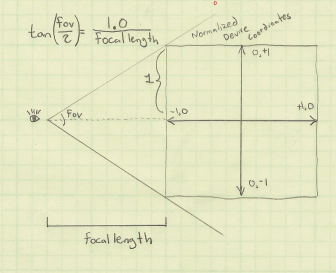 tan(fov/2) = 1.0/focal length
Normalized
Device Coordinates
0,+1
1
-1,0
+1,0
fov
0,-1
focal length